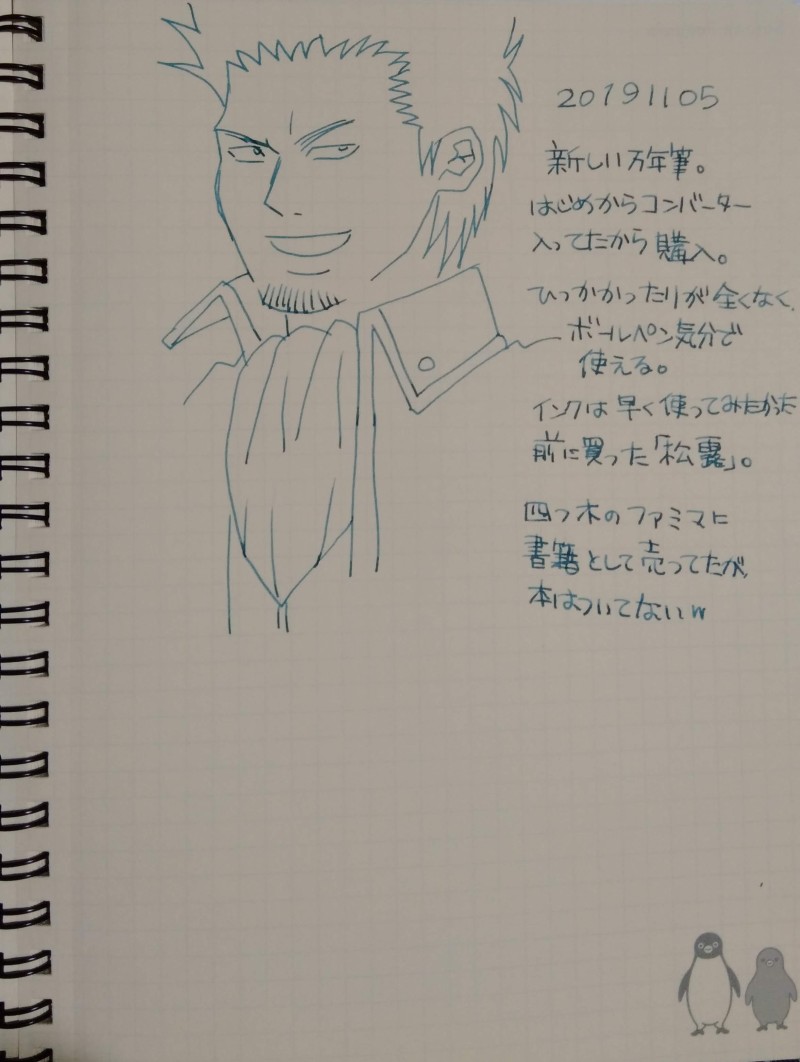 20191105
新しい万年筆。
はじめからコンバーター
入ってたから購入。
ひっかかったりが全くなく、
ボールペン気分で
使える。
インクは早く使ってみたかった
前に買った「松露」。
四つ木のファミマに
書籍として売ってたが、
本はついてないw